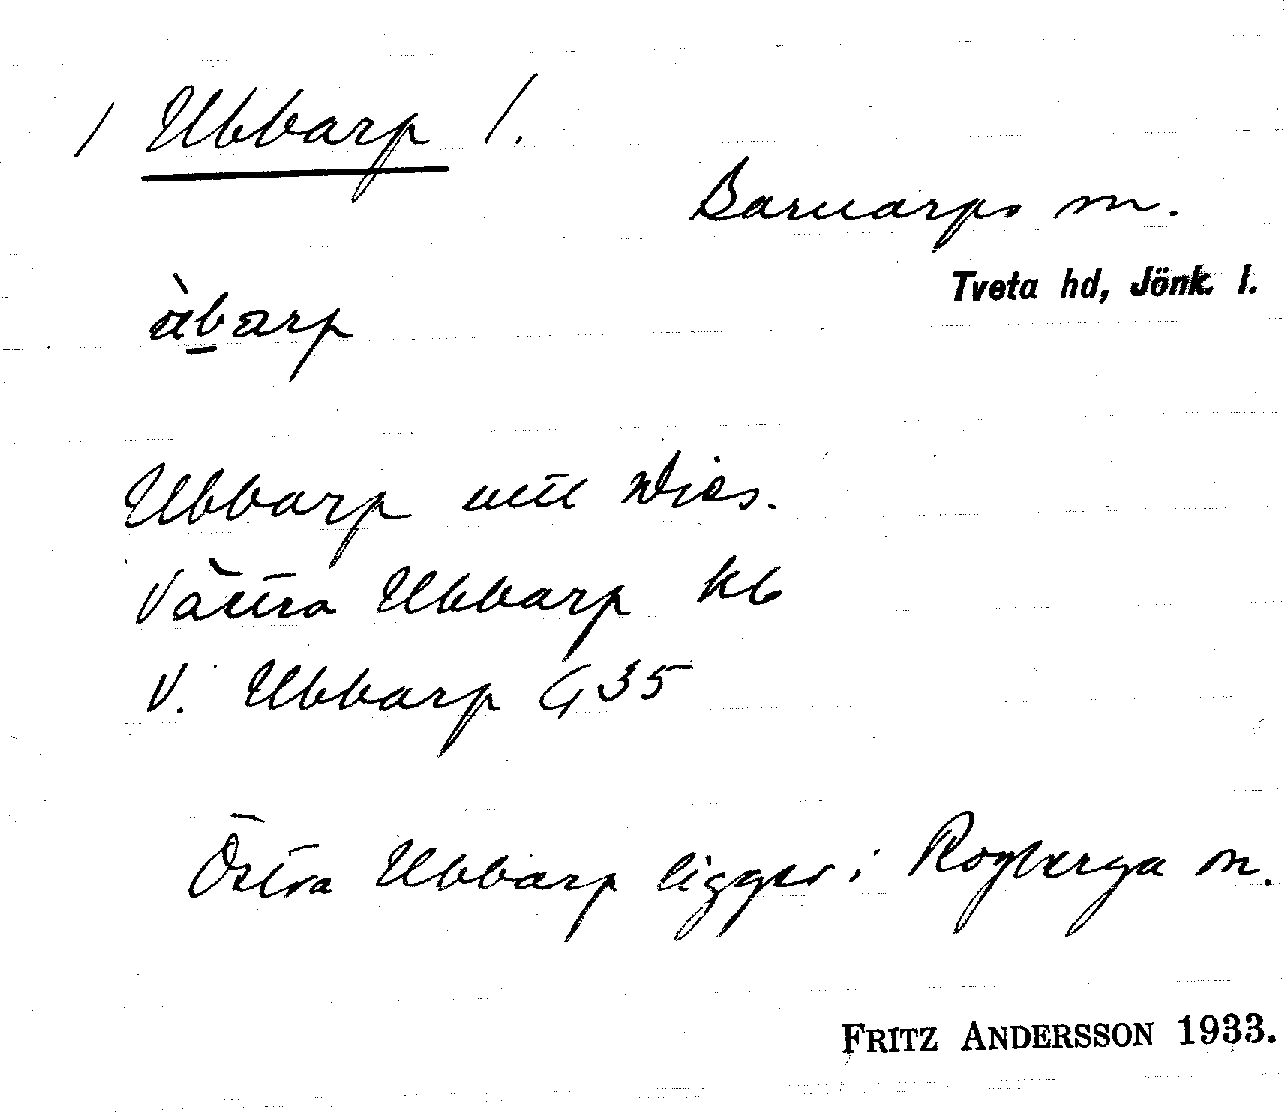 / Ubbarp /.
Barnarps sn.
Tveta hd, Jönk. l.
àbarp
Ubbarp
Västra Ubbarp kb
V. Ubbarp G 35
Östra Ubbarp ligger i Rogberga sn.
FRITZ ANDERSSON 1933.